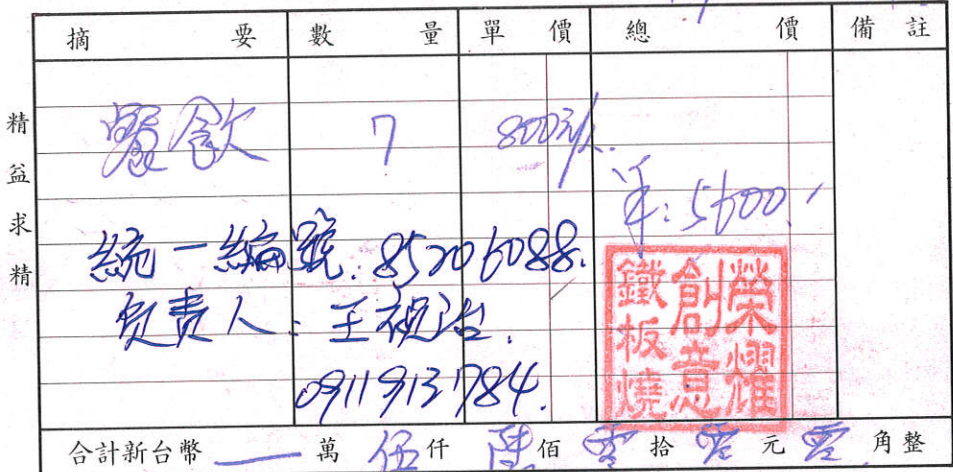 摘要 數量 單價 總價 備註
餐飲 7 800元/人.
洋: 5600.
統一編號: 85206088.
負責人: 王祖治.
0911913784.
榮耀
創意
鐵板燒
合計新台幣 — 萬 伍仟 陸佰 零拾 零元 零角整
精益求精